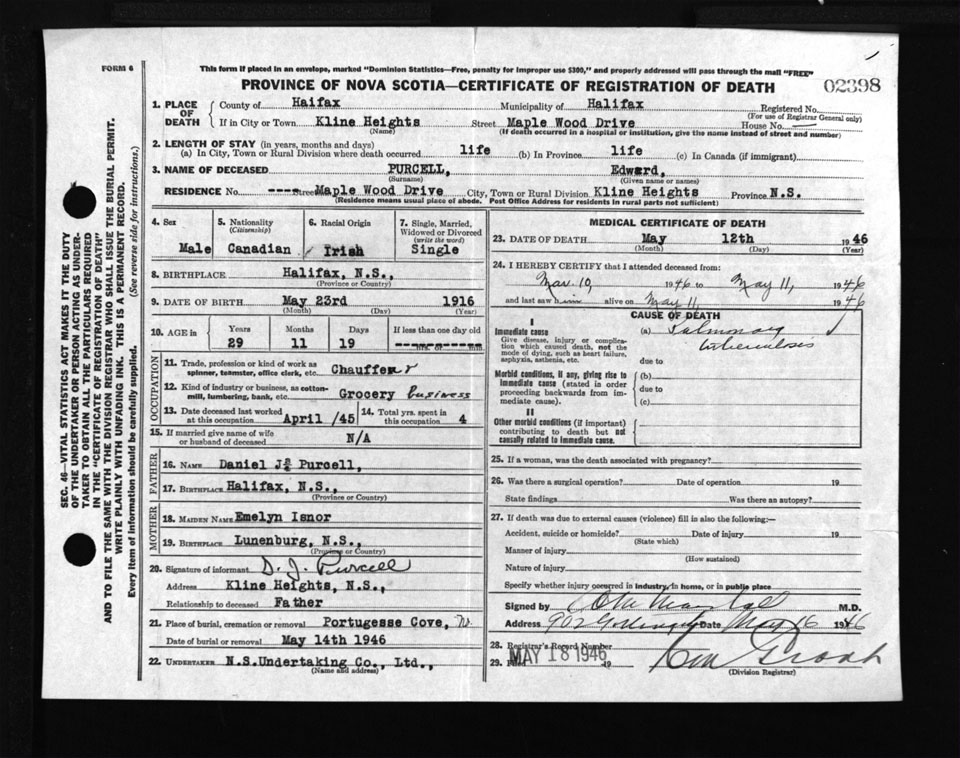 FORM 6
This form if placed in an envelope, marked "Dominion Statistics—Free, penalty for improper use $300," and properly addressed will pass through the mail "FREE"
PROVINCE OF NOVA SCOTIA—CERTIFICATE OF REGISTRATION OF DEATH
02398
1. PLACE OF DEATH
County of Haifax Municipality of Halifax Registered No.
(For use of Registrar General only)
If in City or Town Kline Heights Street Maple Wood Drive House No. —
(Name) (If death occurred in a hospital or institution, give the name instead of street and number)
2. LENGTH OF STAY (in years, months and days)
(a) In City, Town or Rural Division where death occurred life (b) In Province life (c) In Canada (if immigrant)
3. NAME OF DECEASED PURCELL, Edward,
(Surname) (Given name or names)
RESIDENCE No. ---- Street Maple Wood Drive City, Town or Rural Division Kline Heights Province N.S.
(Residence means usual place of abode. Post Office Address for residents in rural parts not sufficient)
4. Sex Male
5. Nationality (Citizenship) Canadian
6. Racial Origin Irish
7. Single, Married, Widowed or Divorced (write the word) Single
8. BIRTHPLACE Halifax, N.S.,
(Province or Country)
9. DATE OF BIRTH May 23rd 1916
(Month) (Day) (Year)
10. AGE in Years 29 Months 11 Days 19 If less than one day old
hrs. or min.
OCCUPATION
11. Trade, profession or kind of work as spinner, teamster, office clerk, etc. Chauffeur
12. Kind of industry or business, as cotton-mill, lumbering, bank, etc. Grocery business
13. Date deceased last worked at this occupation April /45
14. Total yrs. spent in this occupation 4
15. If married give name of wife or husband of deceased N/A
FATHER
16. NAME Daniel J. Purcell,
17. BIRTHPLACE Halifax, N.S.,
(Province or Country)
MOTHER
18. MAIDEN NAME Emelyn Isnor
19. BIRTHPLACE Lunenburg, N.S.,
(Province or Country)
20. Signature of informant D. J. Purcell
Address Kline Heights, N.S.,
Relationship to deceased Father
21. Place of burial, cremation or removal Portugesse Cove,
Date of burial or removal May 14th 1946
22. UNDERTAKER N.S.Undertaking Co., Ltd.,
(Name and address)
MEDICAL CERTIFICATE OF DEATH
23. DATE OF DEATH May 12th 1946
(Month) (Day) (Year)
24. I HEREBY CERTIFY that I attended deceased from:
Mar. 10, 1946 to May 11, 1946
and last saw him alive on May 11, 1946
CAUSE OF DEATH
I
Immediate cause (a) Pulmonary
Give disease, injury or complication which caused death, not the mode of dying, such as heart failure, asphyxia, asthenia, etc.
tuberculosis
due to
Morbid conditions, if any, giving rise to immediate cause (stated in order proceeding backwards from immediate cause).
(b)
due to
(c)
II
Other morbid conditions (if important) contributing to death but not causally related to immediate cause.
25. If a woman, was the death associated with pregnancy?
26. Was there a surgical operation? Date of operation 19
State findings Was there an autopsy?
27. If death was due to external causes (violence) fill in also the following:—
Accident, suicide or homicide? Date of injury 19
(State which)
Manner of injury
(How sustained)
Nature of injury
Specify whether injury occurred in industry, in home, or in public place
Signed by M.D.
Address 902 Date May 16 1946
28. Registrar's Record Number
29. MAY 18 1946 19
(Division Registrar)
SEC. 46—VITAL STATISTICS ACT MAKES IT THE DUTY
OF THE UNDERTAKER OR PERSON ACTING AS UNDER-
TAKER TO OBTAIN ALL THE PARTICULARS REQUIRED
IN THE "CERTIFICATE OF REGISTRATION OF DEATH"
AND TO FILE THE SAME WITH THE DIVISION REGISTRAR WHO SHALL ISSUE THE BURIAL PERMIT.
WRITE PLAINLY WITH UNFADING INK. THIS IS A PERMANENT RECORD.
Every item of Information should be carefully supplied. (See reverse side for instructions.)